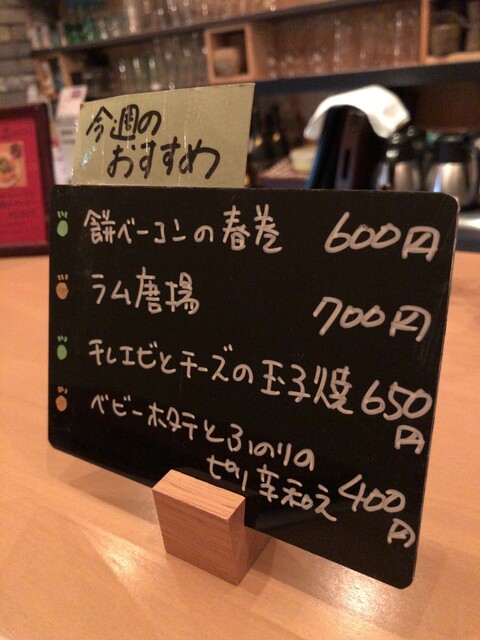 今週の
おすすめ
餅ベーコンの春巻 600円
ラム唐揚 700円
干しエビとチーズの玉子焼 650
円
ベビーホタテとふのりの
ピリ辛和え 400
円